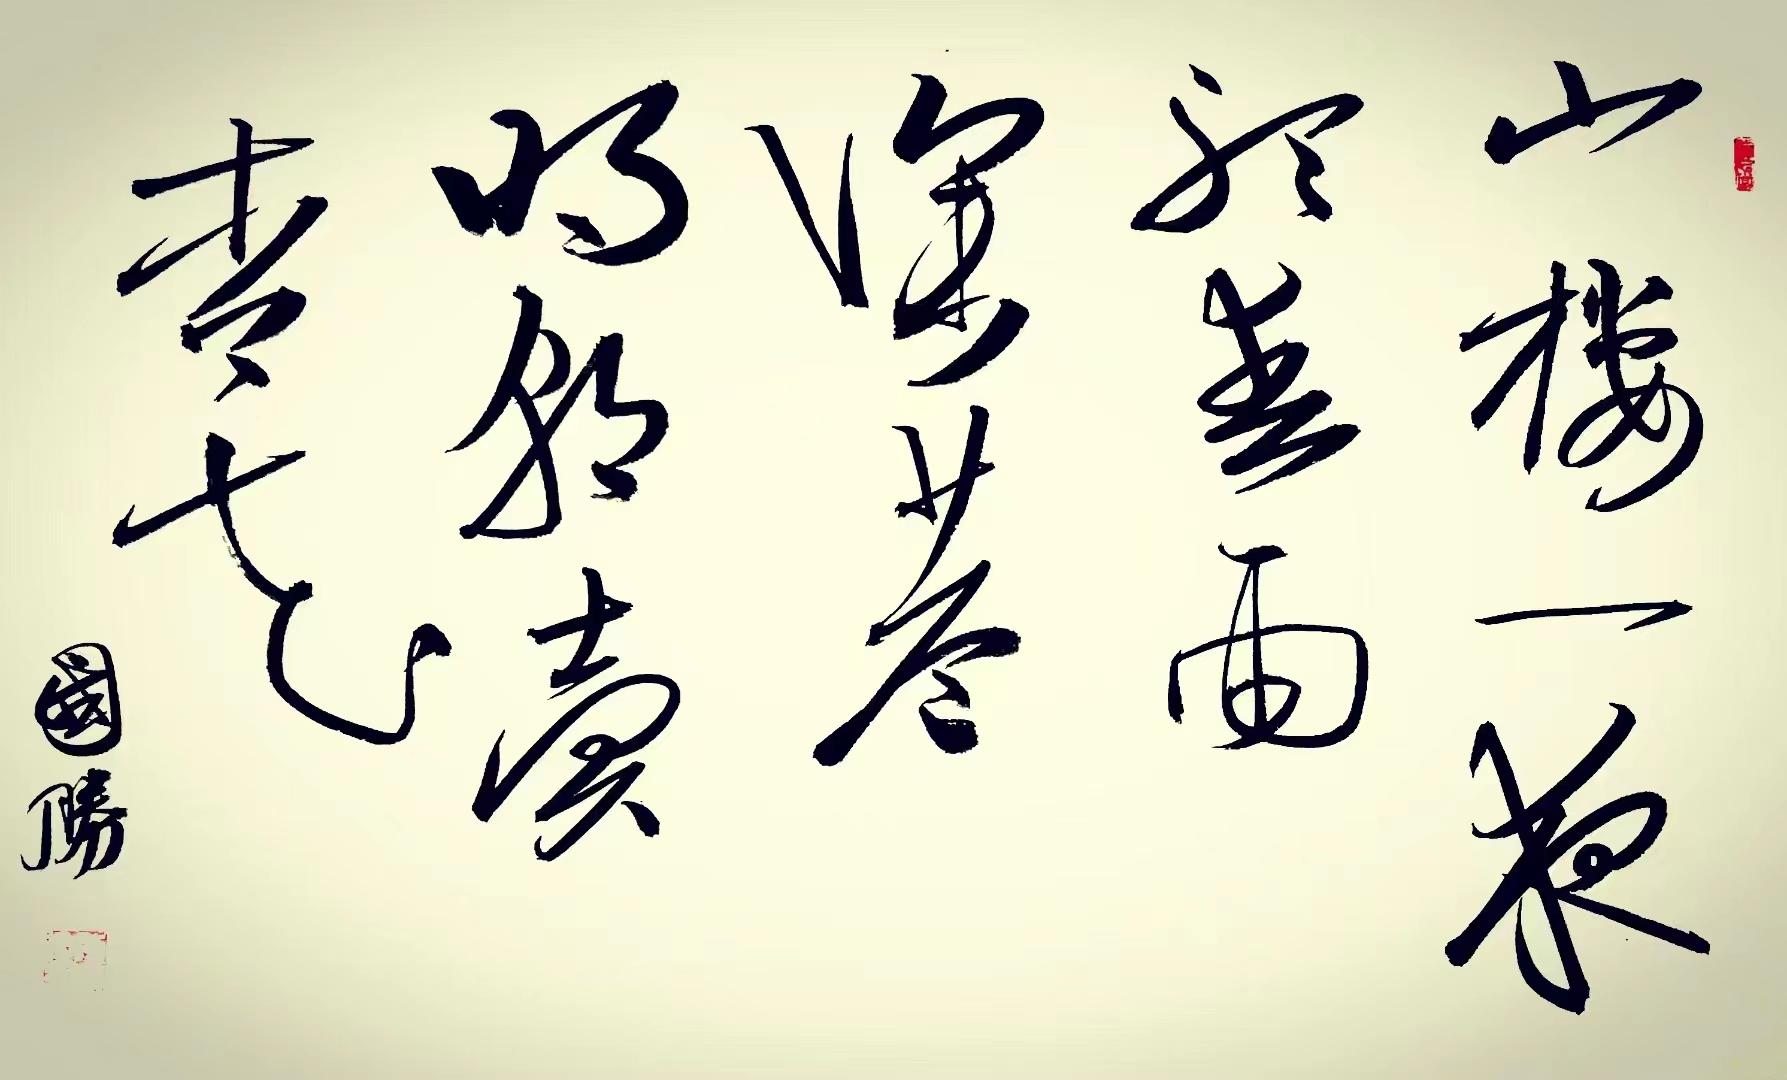 山楼一夜
听春雨
深巷
明朝卖
杏花
國勝